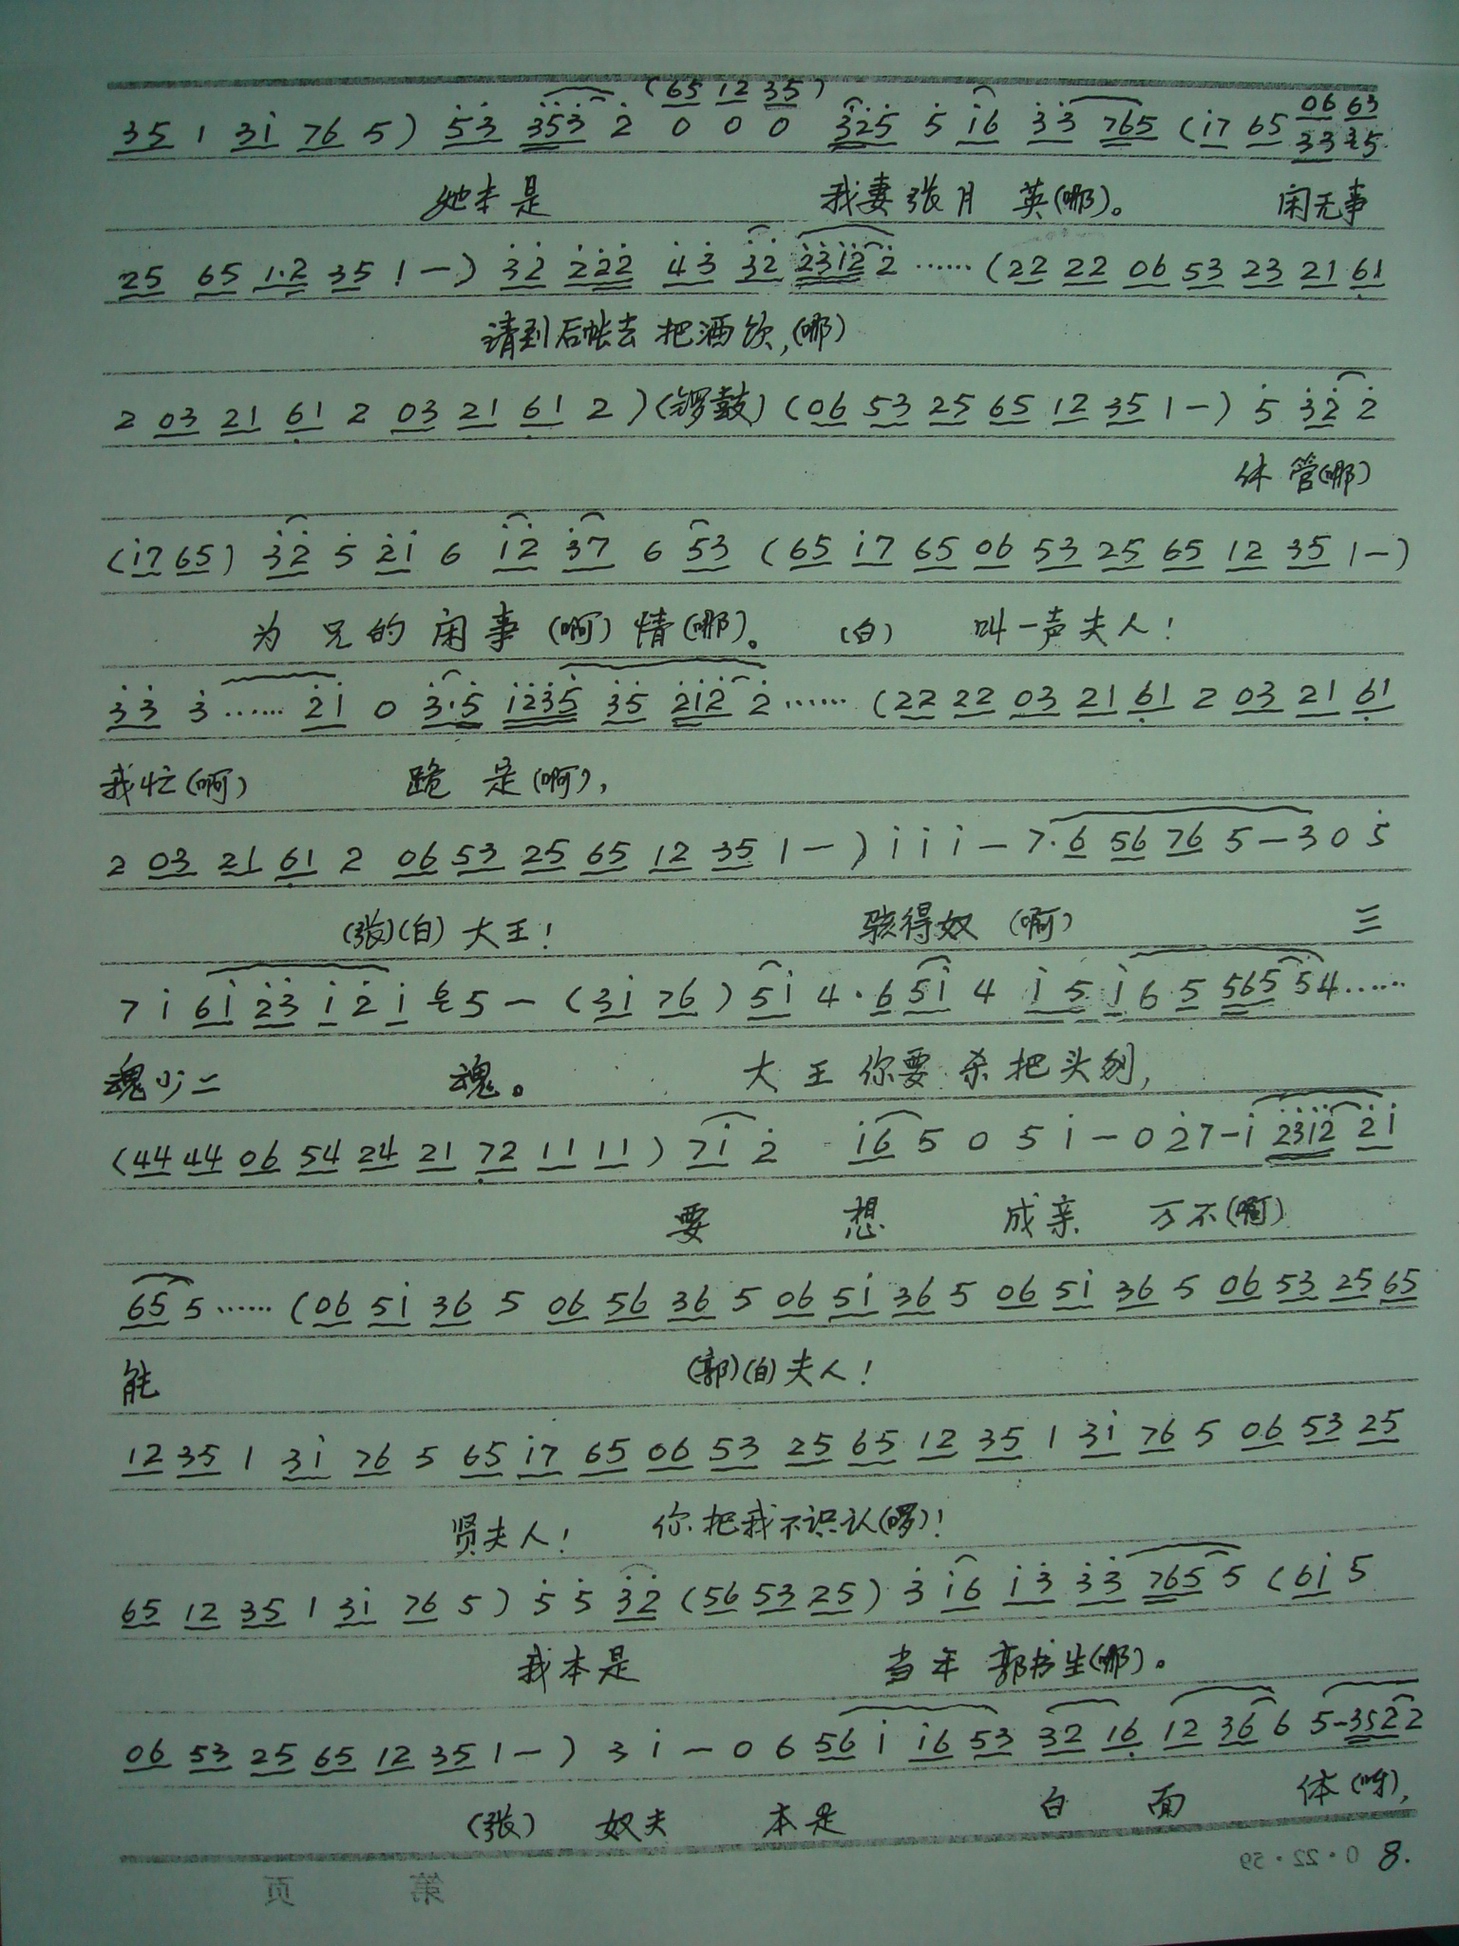 (65 12 35)
35 1 3i 76 5) 53 353 2 0 0 0 325 5 i6 33 765 (i7 65 06 63
33 25
她本是 我妻张月 英(哪)。 闲无事
25 65 1·2 35 1 —) 32 222 43 32 2312 2 …… (22 22 06 53 23 21 61
请到后帐去 把酒饮,(哪)
2 03 21 61 2 03 21 61 2 )(锣鼓)(06 53 25 65 12 35 1 —) 5 32 2
休 管(哪)
(i7 65) 32 5 2i 6 i2 37 6 53 (65 i7 65 06 53 25 65 12 35 1 —)
为 兄的 闲事 (啊) 情(哪)。 (白) 叫一声夫人!
33 3 …… 2i 0 3·5 1235 35 212 2 …… (22 22 03 21 61 2 03 21 61
我忙(啊) 跪 定(啊),
2 03 21 61 2 06 53 25 65 12 35 1 — ) i i i — 7·6 56 76 5 — 3 0 5
(张)(白) 大王! 骇得奴 (啊) 三
7 i 6i 23 i 2 i 5 — (3i 76) 5i 4·6 5i 4 i 5 i 6 5 565 54 ……
魂少二 魂。 大王 你要 杀把头刎,
(44 44 06 54 24 21 72 11 11 ) 7i 2 i6 5 0 5 i — 0 2 7 — i 2312 2i
要 想 成亲 万不(啊)
65 5 …… (06 5i 36 5 06 56 36 5 06 5i 36 5 06 5i 36 5 06 53 25 65
能 (郭)(白) 夫人!
12 35 1 3i 76 5 65 i7 65 06 53 25 65 12 35 1 3i 76 5 06 53 25
贤夫人! 你把我不识认(啰)!
65 12 35 1 3i 76 5 ) 5 5 32 (56 53 25) 3 i6 i3 33 765 5 (6i 5
我本是 当年 郭书生(哪)。
06 53 25 65 12 35 1 — ) 3 i — 0 6 56 i i6 53 32 16 12 36 6 5 — 352 2
(张) 奴夫 本是 白 面 体(呀),
0·22·59 8.
第 页